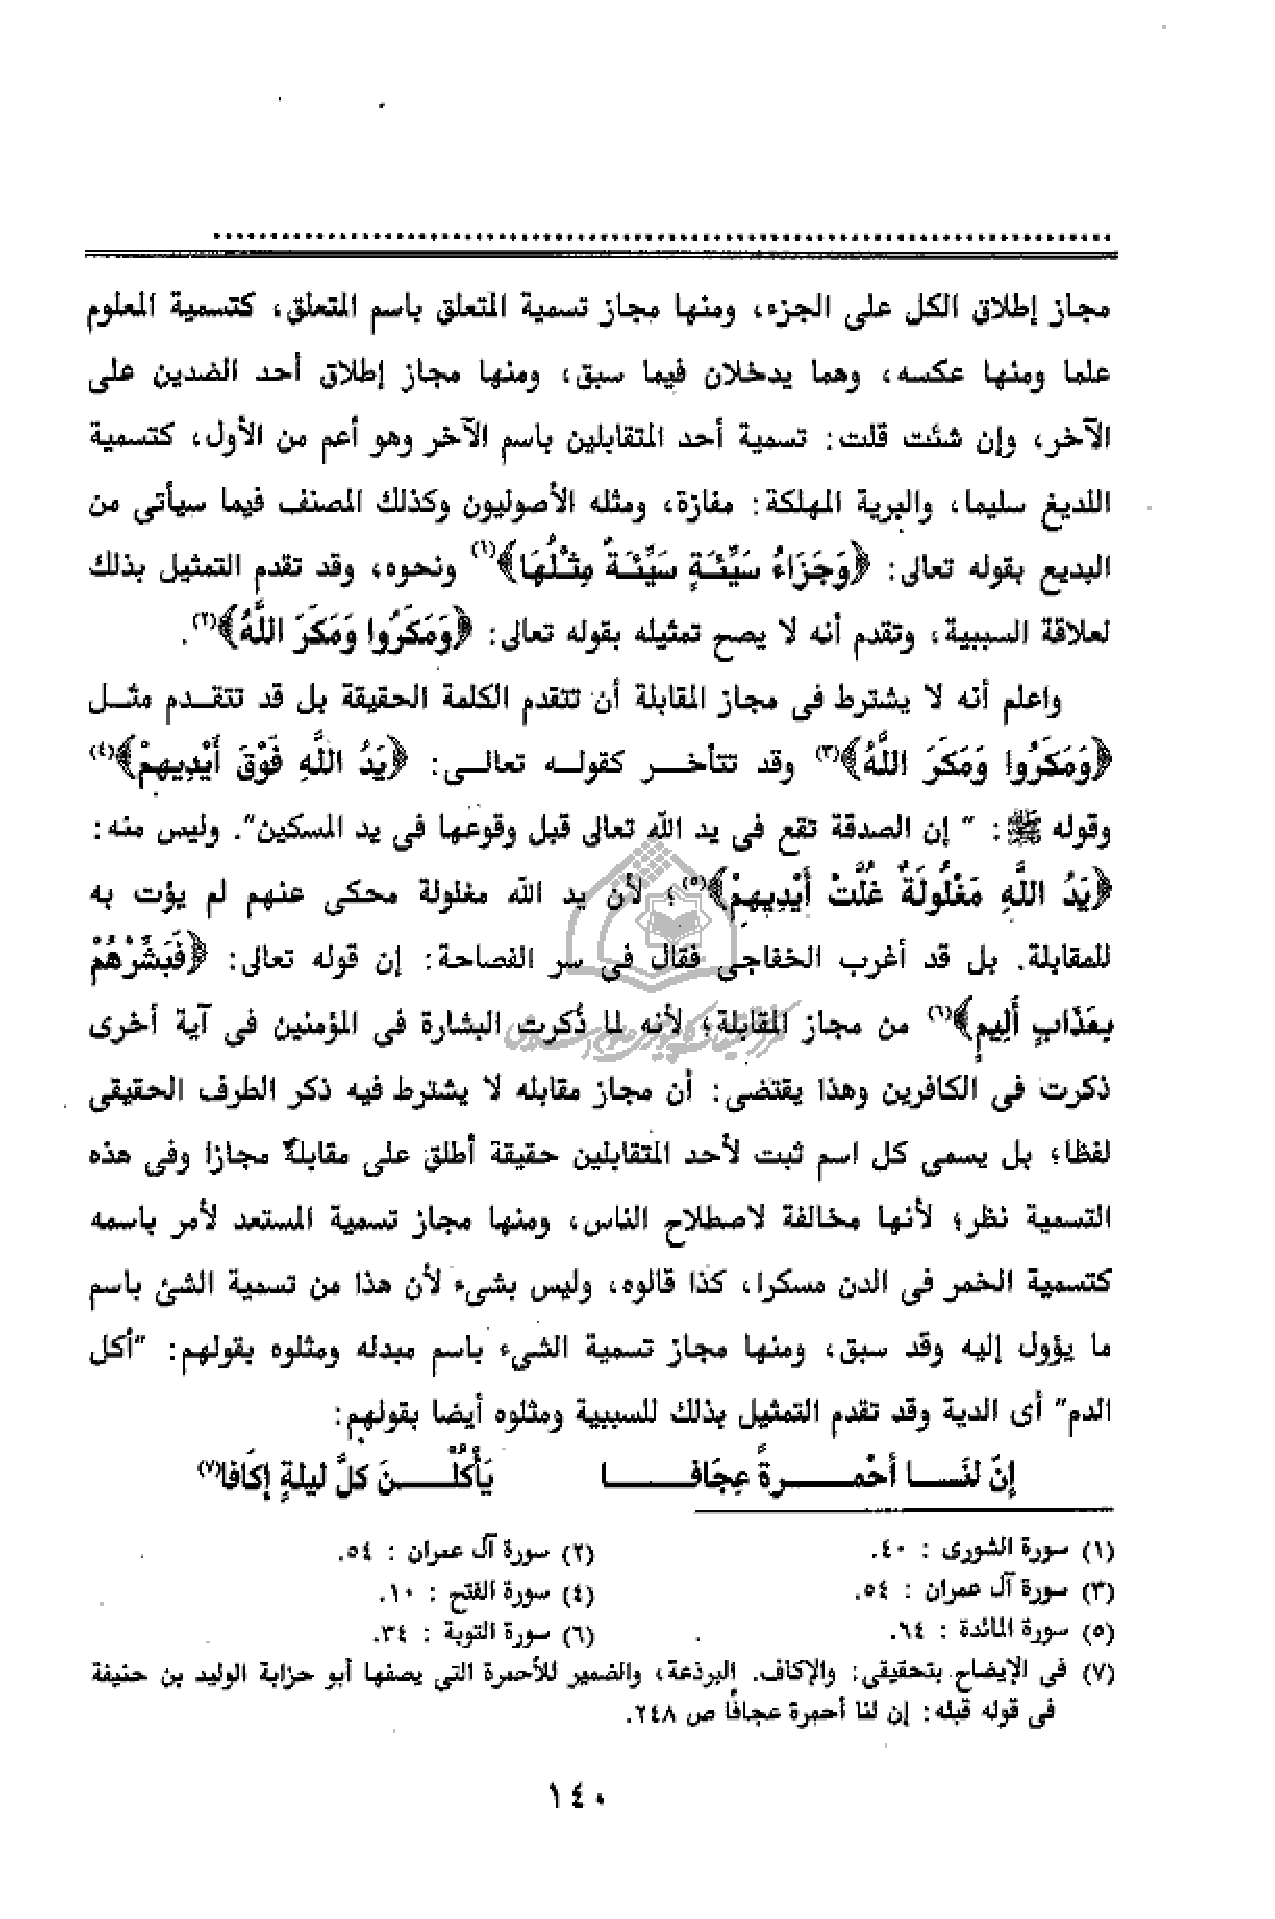 مجاز إطلاق الكل على الجزء، ومنها مجاز تسمية المتعلق باسم المتعلق، كتسمية المعلوم
علما ومنها عكسه، وهما يدخلان فيما سبق، ومنها مجاز إطلاق أحد الضدين على
الآخر، وإن شئت قلت: تسمية أحد المتقابلين باسم الآخر وهو أعم من الأول، كتسمية
اللديغ سليما، والبرية المهلكة: مفازة، ومثله الأصوليون وكذلك المصنف فيما سيأتى من
البديع بقوله تعالى: ﴿وَجَزَاءُ سَيِّئَةٍ سَيِّئَةٌ مِثْلُهَا﴾(١) ونحوه، وقد تقدم التمثيل بذلك
لعلاقة السببية، وتقدم أنه لا يصح تمثيله بقوله تعالى: ﴿وَمَكَرُوا وَمَكَرَ اللَّهُ﴾(٢).
واعلم أنه لا يشترط فى مجاز المقابلة أن تتقدم الكلمة الحقيقة بل قد تتقـدم مثـل
﴿وَمَكَرُوا وَمَكَرَ اللَّهُ﴾(٣) وقد تتأخـر كقولـه تعالـى: ﴿يَدُ اللَّهِ فَوْقَ أَيْدِيهِمْ﴾(٤)
وقوله ﷺ: " إن الصدقة تقع فى يد الله تعالى قبل وقوعها فى يد المسكين". وليس منه:
﴿يَدُ اللَّهِ مَغْلُولَةٌ غُلَّتْ أَيْدِيهِمْ﴾(٥)؛ لأن يد الله مغلولة محكى عنهم لم يؤت به
للمقابلة. بل قد أغرب الخفاجى فقال فى سر الفصاحة: إن قوله تعالى: ﴿فَبَشِّرْهُمْ
بِعَذَابٍ أَلِيمٍ﴾(٦) من مجاز المقابلة؛ لأنه لما ذُكرت البشارة فى المؤمنين فى آية أخرى
ذكرت فى الكافرين وهذا يقتضى: أن مجاز مقابله لا يشترط فيه ذكر الطرف الحقيقى
لفظا؛ بل يسمى كل اسم ثبت لأحد المتقابلين حقيقة أطلق على مقابله مجازا وفى هذه
التسمية نظر؛ لأنها مخالفة لاصطلاح الناس، ومنها مجاز تسمية المستعد لأمر باسمه
كتسمية الخمر فى الدن مسكرا، كذا قالوه، وليس بشىء لأن هذا من تسمية الشئ باسم
ما يؤول إليه وقد سبق، ومنها مجاز تسمية الشىء باسم مبدله ومثلوه بقولهم: "أكل
الدم" أى الدية وقد تقدم التمثيل بذلك للسببية ومثلوه أيضا بقولهم:
إنّ لنَــا أحْمــرةً عِجَافــا يَأْكُلْــنَ كلَّ ليلةٍ إكَافا(٧)
(١) سورة الشورى : ٤٠.
(٢) سورة آل عمران : ٥٤.
(٣) سورة آل عمران : ٥٤.
(٤) سورة الفتح : ١٠.
(٥) سورة المائدة : ٦٤.
(٦) سورة التوبة : ٣٤.
(٧) فى الإيضاح بتحقيقى: والإكاف. البرذعة، والضمير للأحمرة التى يصفها أبو حزابة الوليد بن حنيفة
فى قوله قبله: إن لنا أحمرة عجافًا ص ٢٤٨.
١٤٠